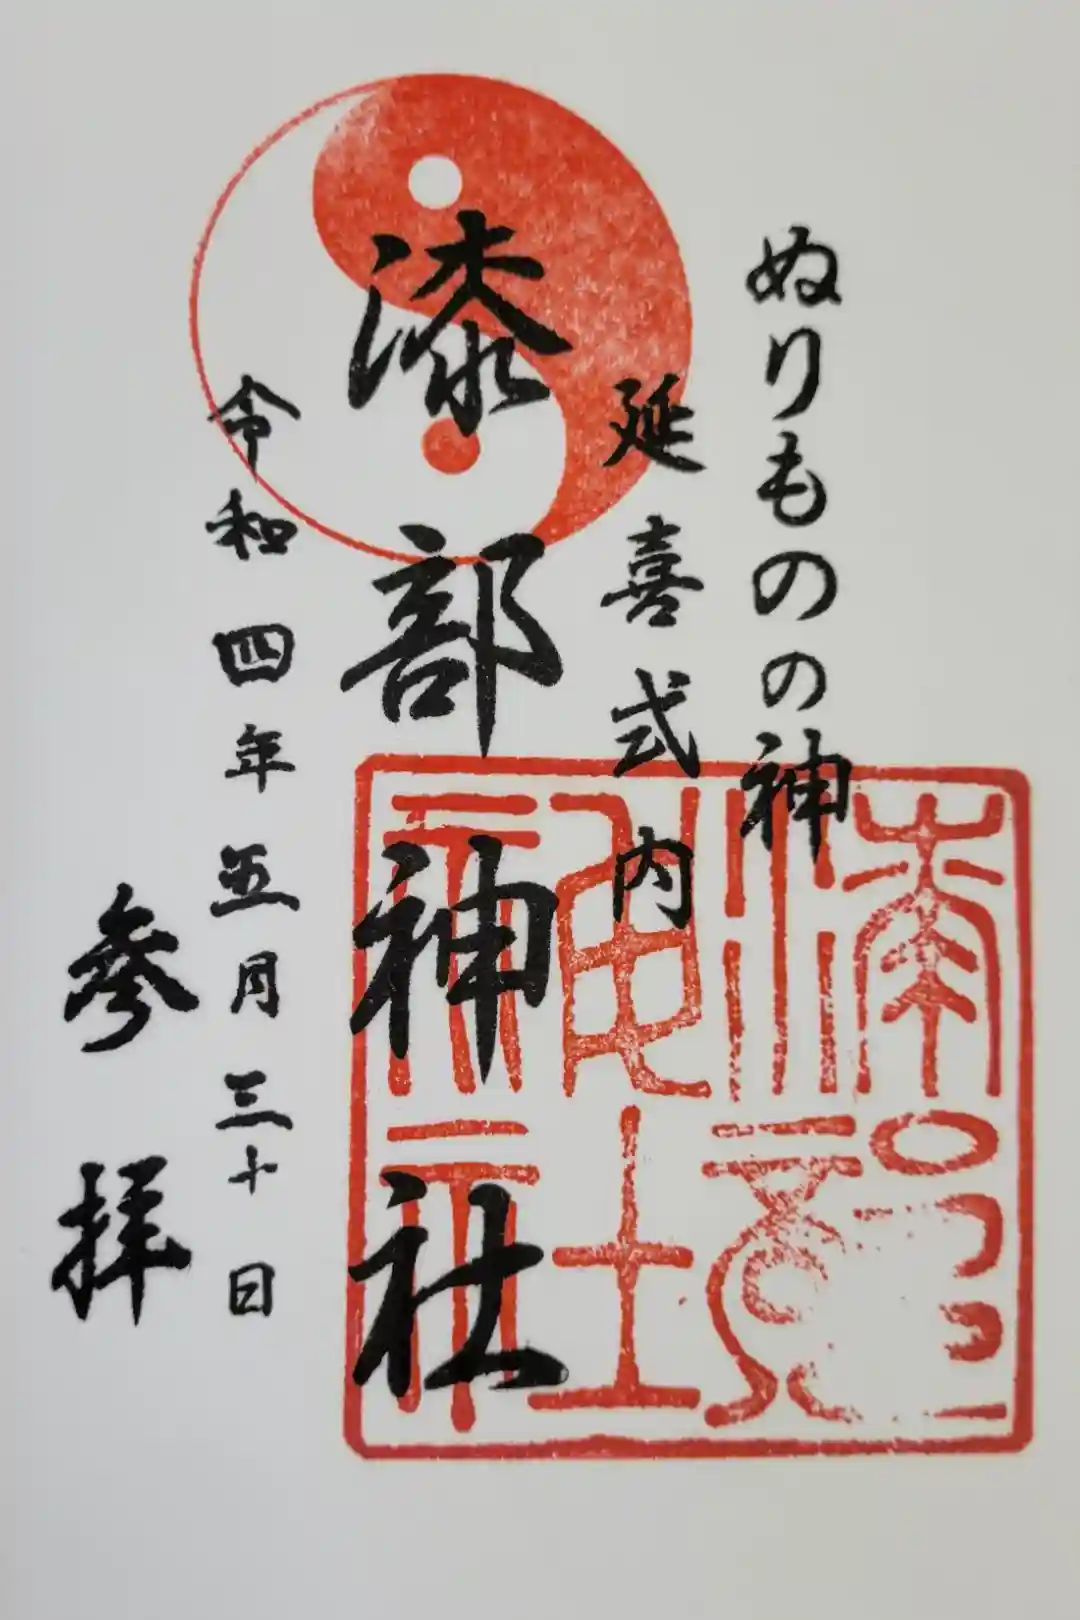 ぬりものの神
延喜式内
漆部神社
令和四年五月三十日
参拝